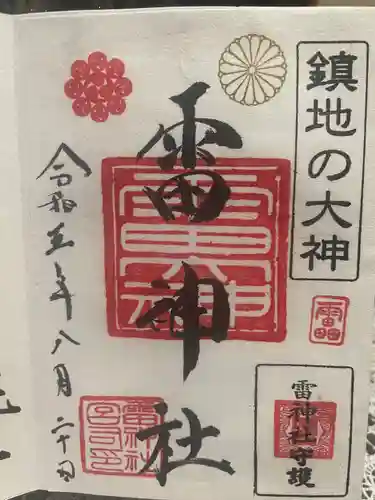 鎮地の大神
雷神社
雷神社守護
令和五年八月二十日